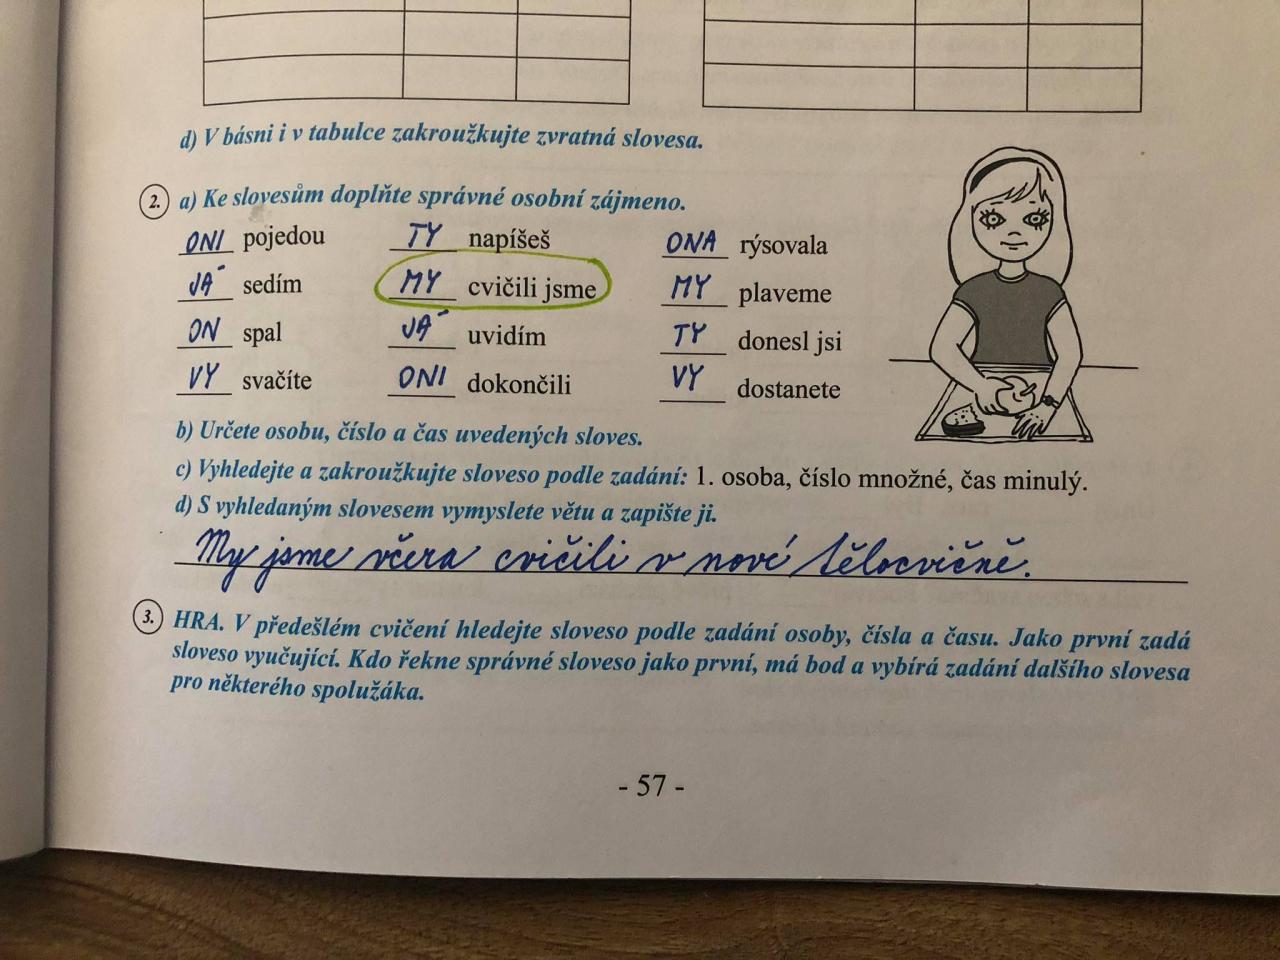 d) V básni i v tabulce zakroužkujte zvratná slovesa.
2. a) Ke slovesům doplňte správné osobní zájmeno.
ONI pojedou TY napíšeš ONA rýsovala
JÁ sedím MY cvičili jsme MY plaveme
ON spal JÁ uvidím TY donesl jsi
VY svačíte ONI dokončili VY dostanete
b) Určete osobu, číslo a čas uvedených sloves.
c) Vyhledejte a zakroužkujte sloveso podle zadání: 1. osoba, číslo množné, čas minulý.
d) S vyhledaným slovesem vymyslete větu a zapište ji.
My jsme včera cvičili v nové tělocvičně.
3. HRA. V předešlém cvičení hledejte sloveso podle zadání osoby, čísla a času. Jako první zadá
sloveso vyučující. Kdo řekne správné sloveso jako první, má bod a vybírá zadání dalšího slovesa
pro některého spolužáka.
- 57 -